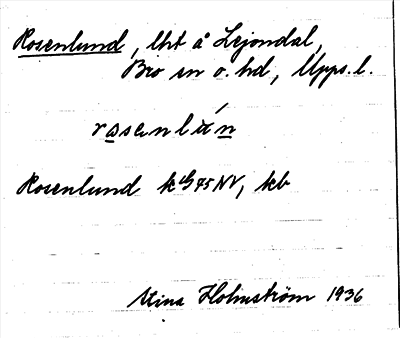 Rosenlund, lht å Lejondal,
Bro sn o. hd, Upps. l.
rosenlún
Rosenlund k 45 NV, kb
Stina Holmström 1936